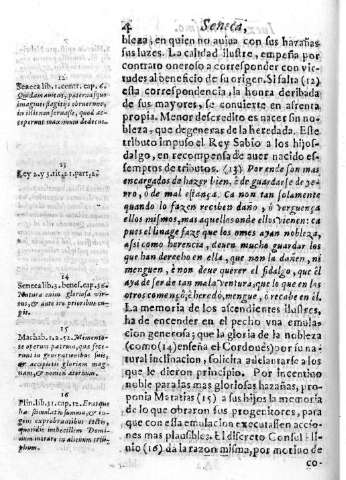 4 Seneca,
bleza; en quien no auiua con sus hazañas
sus luzes. La calidad ilustre, empeña por
contrato oneroso a corresponder con vir-
tudes al beneficio de su origen. Si falta (12)
esta correspondencia, la honra deribada
de sus mayores, se conuierte en afrenta
propia. Menor descredito es nacer sin no-
bleza, que degenerar de la heredada. Este
tributo impuso el Rey Sabio a los hijos-
dalgo, en recompensa de auer nacido es-
semptos de tributos. (13) Por ende son mas
encargados de hazer bien, è de guardarse de ye-
rro, ò de mal estança. Ca non tan solamente
quando lo fazen reciben daño, ò verguença
ellos mismos, mas aquellos onde ellos vienen: ca
pues el linage faze que los omes ayan nobleza,
assi como herencia, deuen mucho guardar los
que han derecho en ella, que non la dañen, ni
menguen, è non deue querer el fidalgo, que èl
aya de ser de tan mala ventura, que lo que en los
otros començò, è heredò, mengue, o acabe en èl.
La memoria de los ascendientes ilustres,
ha de encender en el pecho vna emula-
cion generosa; que la gloria de la nobleza
(como (14) enseña el Cordouès) por su na-
tural inclinacion, solicita adelantarse a los
que le dieron principio. Por incentiuo
noble para las mas gloriosas hazañas, pro-
ponia Matatias (15) a sus hijos la memoria
de lo que obraron sus progenitores, para
que con esta emulacion executassen accio-
nes mas plausibles. El discreto Consul Pli-
nio (16) da la razon misma, por motiuo de
co-
12
Seneca lib. 1. contr. cap. 6.
13
Rey 2. y 3. tit. 21. part. 2.
14
Seneca lib. 3. benef. cap. 36.
15
Machab. 1. 2. 51. Memento-
te operum patrum, quæ fec-
erunt in generationibus suis,
& accipietis gloriam mag-
nam, & nomen æternum.
16
Plin. lib. 31. cap. 12.